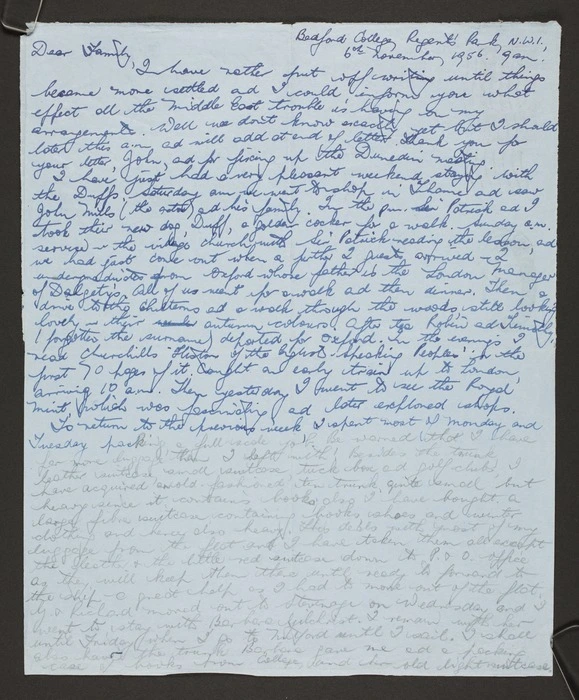 Bedford College, Regent's Park, N.W.1,
6th November, 1956. 9am.
Dear Family,
I have rather put off writing until things
became more settled ad I could inform you what
effect all the Middle East trouble is having on my
arrangements. Well we don't know exactly yet but I should
later this a.m. ad will add at end of letter. Thank you for
your letter John, ad for fixing up the Dunedin meeting.
I have just had a very pleasant weekend staying with
the Duffs. Saturday am we went to shop in Thame ad saw
John Mills (the actor) ad his family. In the p.m. Patrick ad I
took their new dog, Duff, a golden cocker for a walk. Sunday a.m.
service in the village church with Patrick reading the lesson, ad
we had just come out when a further 2 guests arrived - 2
undergraduates from Oxford whose father is the London Manager
of Dalgety's. All of us went for a walk ad then dinner. Then a
drive to the Chilterns ad a walk through the woods, still looking
lovely in their autumn colours. After tea Robin ad
(forgotten the surname) departed for Oxford. In the evening I
read Churchill's "History of the English-Speaking Peoples" in the
first 70 pages of it. Caught an early train up to London,
arriving 10 a.m. Then yesterday I went to see the Royal
Mint, which was fascinating ad later explored shops.
To return to the previous week I spent most of Monday and
Tuesday packing a full scale job! Be warned that I have
far more luggage than I left with! Besides the trunk
leather suitcase small suitcase tuck box ad golf clubs I
have acquired an old-fashioned tin trunk quite small but
heavy since it contains books, also I have bought a
large fibre suitcase containing books shoes and winter
clothing and hence also heavy. This deals with most of my
luggage from the flat and I have taken them all except
the leather & the little red suitcase down to P. & O. Office
as they will keep them there until ready to forward to
the ship - a great help as I had to move out of the flat.
had moved out to Stevenage on Wednesday and I
went to stay with Barbara Gilchrist. I remain with her
until Friday when I go to until I sail. I shall
also have the trunk Barbara gave me ad a packing
case of books from College, and her old light suitcase,